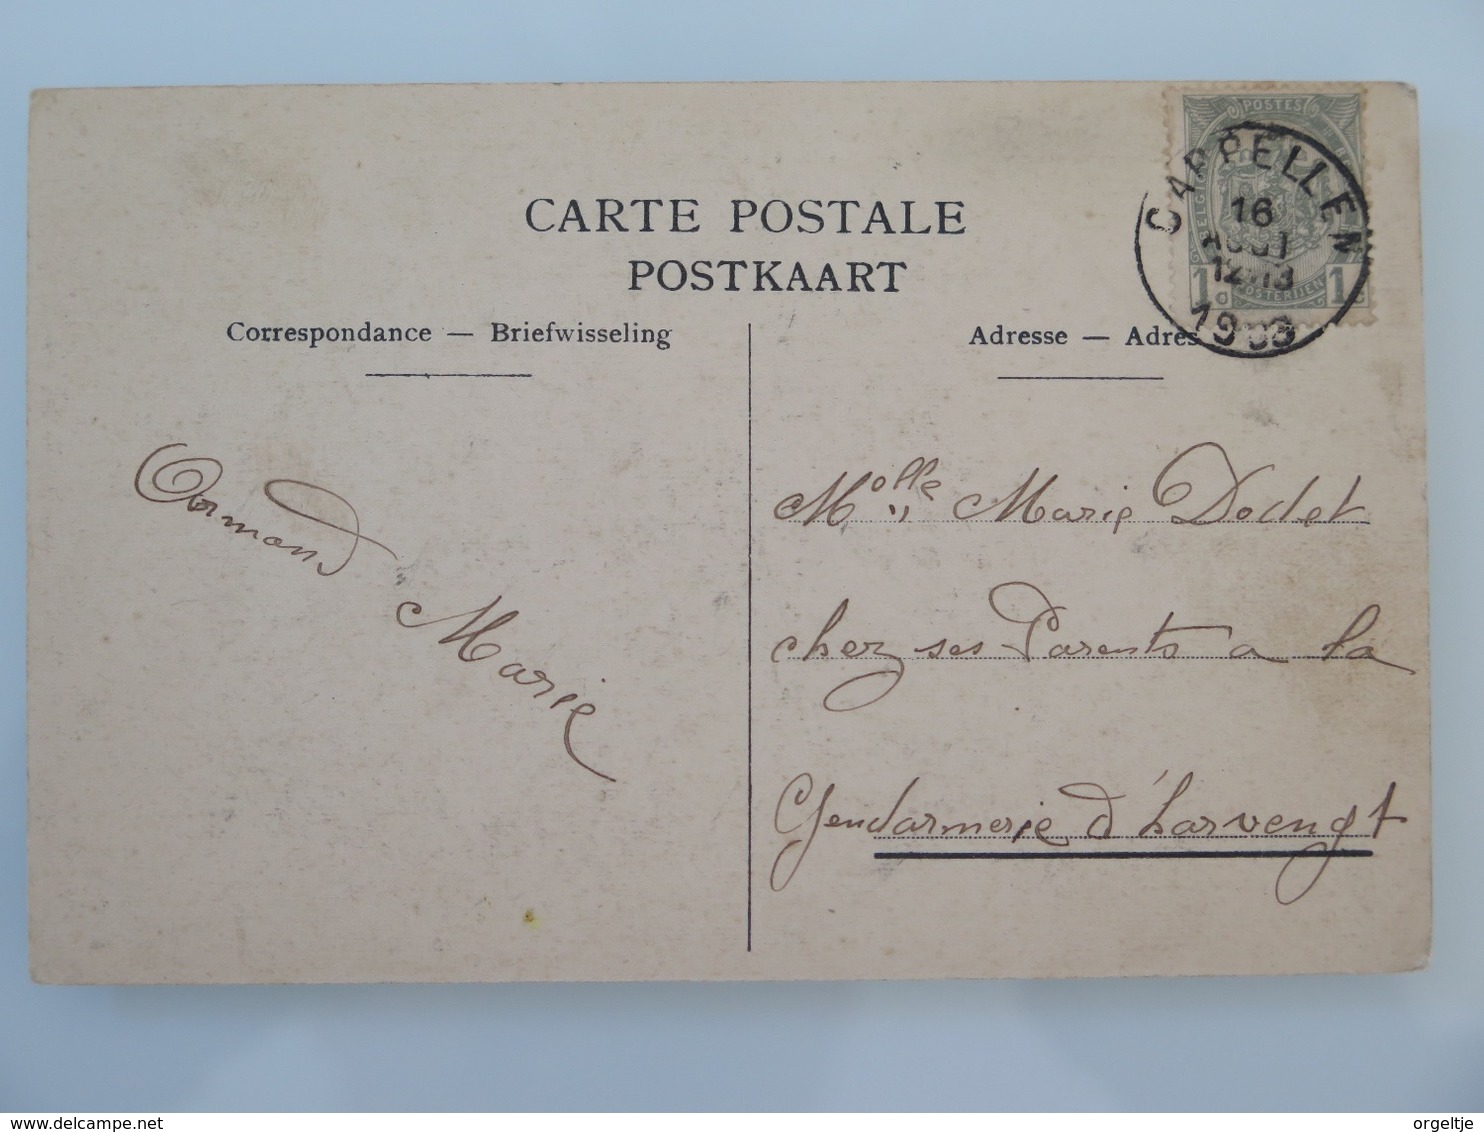 POSTES
CAPPELLEN
16
AOUT
12-13
POSTERIJEN
1 1
CARTE POSTALE
POSTKAART
Correspondance — Briefwisseling
Adresse — Adres
Armand
Marie
Molle Marie Dodet
chez ses Parents a la
Gendarmerie d'harvengt
delcampe.net
orgeltje